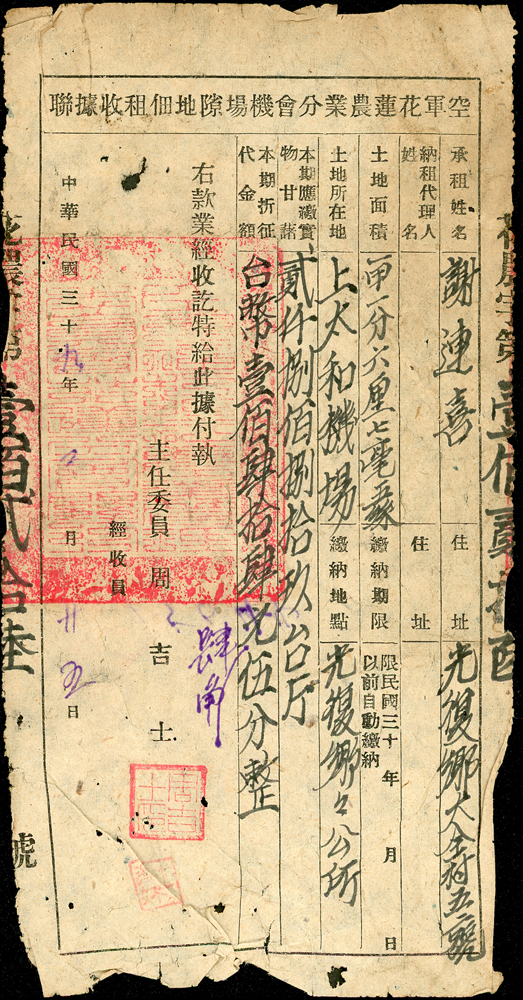 空軍花蓮農業分會機場隙地佃租收據聯
承租姓名 謝連喜 住址 光復鄉大全村五號
納租代理人姓名 住址
土地面積 甲一分六厘七毫 繳納期限 限民國三十 年 月 日以前自動繳納
土地所在地 上大和機場 繳納地點 光復鄉々公所
本期應繳實物甘藷 貳仟捌佰捌拾玖台斤
本期折征代金額 台幣壹佰肆拾肆元肆角伍分整
右款業經收訖特給此據付執
主任委員 周吉士
經收員
中華民國三十九年 月廿五日
壹佰貳拾陸
號